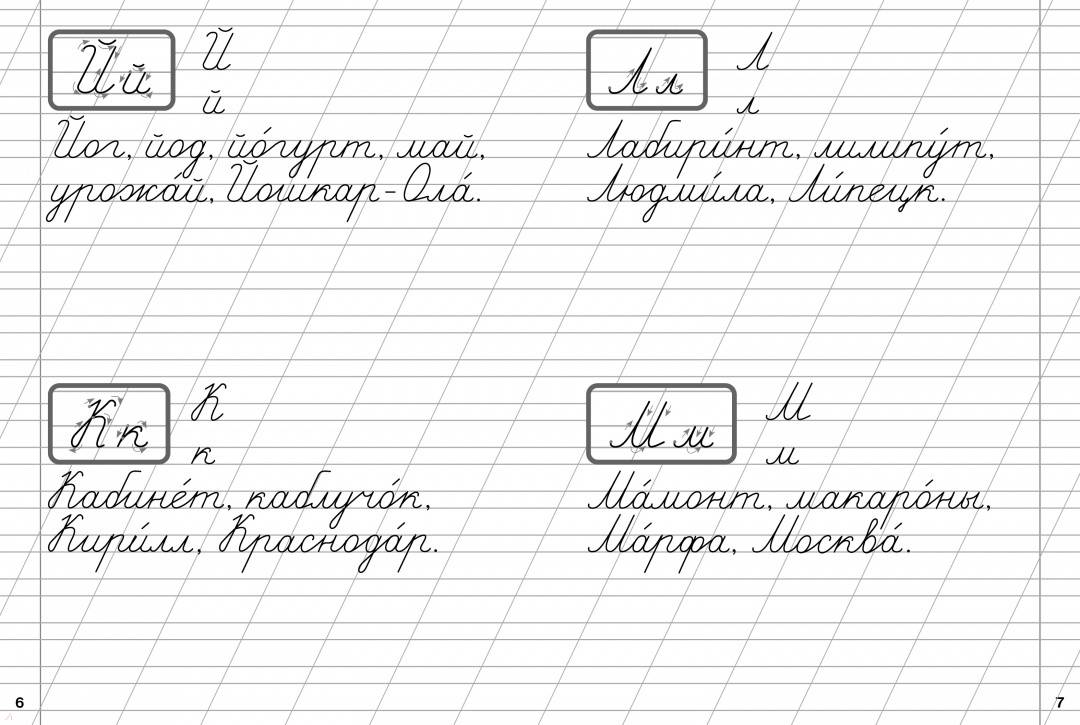 Й й Й
й
Йог, йод, йо́гурт, май,
урожа́й, Йошкар-Ола́.
К к К
к
Кабине́т, каблучо́к,
Кири́лл, Краснода́р.
6
Л л Л
л
Лабири́нт, лилипу́т,
Людми́ла, Ли́пецк.
М м М
м
Ма́монт, макаро́ны,
Ма́рфа, Москва́.
7